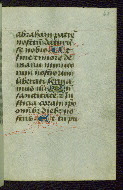 abraham patrē
nostrū daturū
se nobis Ut
sine timore de
manu inimico
rum nostrorū
liberati seruia
mus illi In
sanctitate et iu
sticia coram ip
so omnibus diebus no
stris Et tu pu